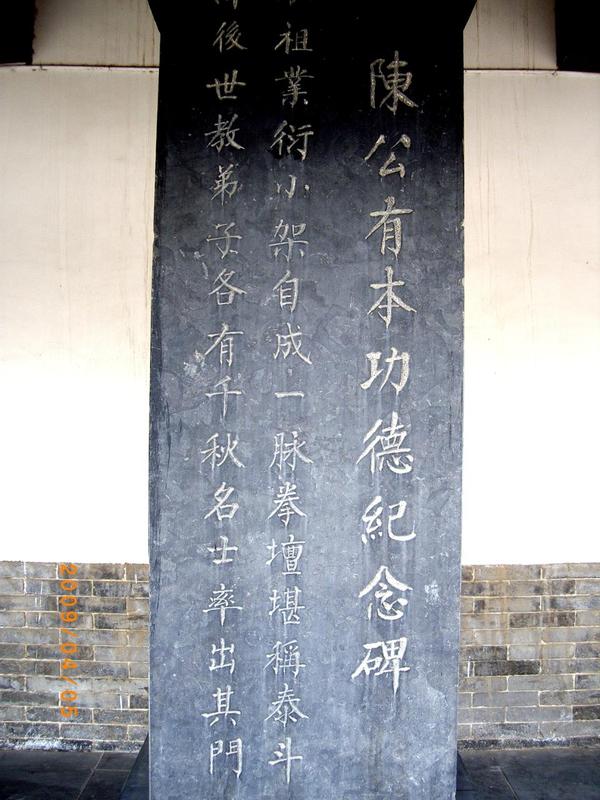 陳公有本功德紀念碑
祖業衍小架自成一脉拳壇堪稱泰斗
後世教弟子各有千秋名士率出其門
2009/04/05